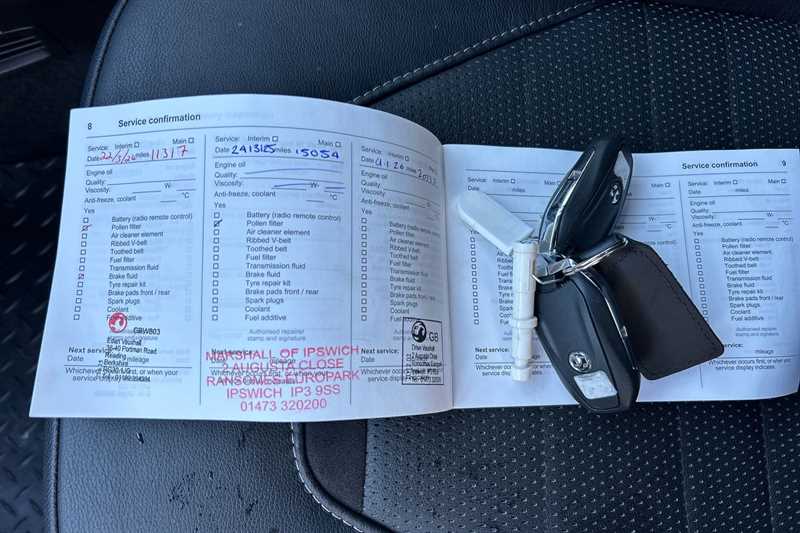 8 Service confirmation
Service: Interim Main
Date 22/3/24 miles 11317
Engine oil
Quality:
Viscosity: W-
Anti-freeze, coolant °C
Yes
Battery (radio remote control)
Pollen filter
Air cleaner element
Ribbed V-belt
Toothed belt
Fuel filter
Transmission fluid
Brake fluid
Tyre repair kit
Brake pads front / rear
Spark plugs
Coolant
Fuel additive
GBW803
Eden Vauxhall
36-40 Portman Road
Reading
Berkshire
Next service:
Date mileage
Whichever occurs first, or when your
service display
Service: Interim Main
Date 24/3/25 miles 15054
Engine oil
Quality:
Viscosity: W-
Anti-freeze, coolant °C
Yes
Battery (radio remote control)
Pollen filter
Air cleaner element
Ribbed V-belt
Toothed belt
Fuel filter
Transmission fluid
Brake fluid
Tyre repair kit
Brake pads front / rear
Spark plugs
Coolant
Fuel additive
Authorised repairer
stamp and signature
Next service:
MARSHALL OF IPSWICH
2 AUGUSTA CLOSE
RANSOMES EUROPARK
IPSWICH IP3 9SS
01473 320200
Service: Interim Main
Date miles
Engine oil
Quality:
Viscosity: W-
Anti-freeze, coolant °C
Yes
Battery (radio remote control)
Pollen filter
Air cleaner element
Ribbed V-belt
Toothed belt
Fuel filter
Transmission fluid
Brake fluid
Tyre repair kit
Brake pads front / rear
Spark plugs
Coolant
Fuel additive
GB
Vauxhall
2 Augusta Close
Next service:
Date
Whichever occurs first, or when your
service display
Service confirmation 9
Service: Interim Main
Date miles
Engine oil
Quality:
Viscosity:
Anti-freeze, coolant
Yes
Next service:
Date
Whichever occurs
service display
Service: Interim Main
Date miles
Engine oil
Quality:
Viscosity: W-
Anti-freeze, coolant °C
Yes
Battery (radio remote control)
Pollen filter
Air cleaner element
Ribbed V-belt
Toothed belt
Fuel filter
Transmission fluid
Brake fluid
Tyre repair kit
Brake pads front / rear
Spark plugs
Coolant
Fuel additive
Authorised repairer
stamp and signature
mileage
Whichever occurs first, or when your
service display indicates.